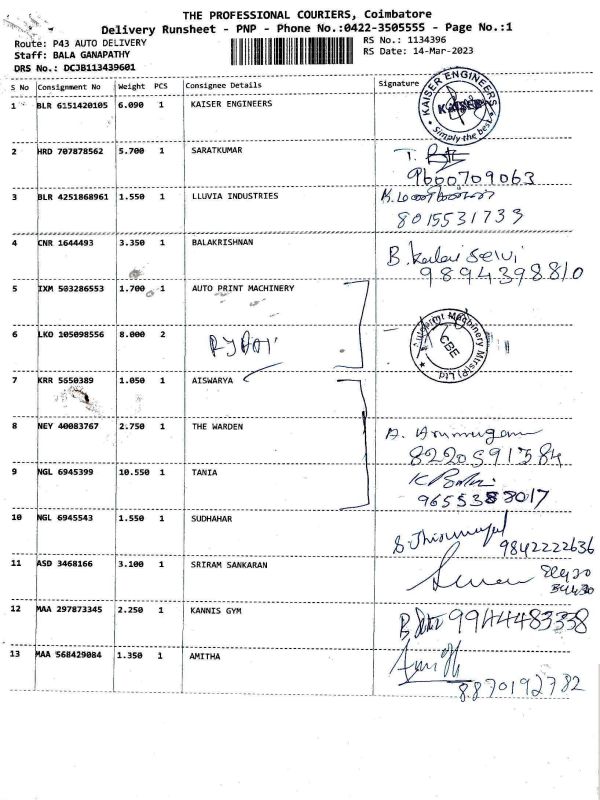 THE PROFESSIONAL COURIERS, Coimbatore
Delivery Runsheet - PNP - Phone No.:0422-3505555 - Page No.:1
Route: P43 AUTO DELIVERY
RS No.: 1134396
Staff: BALA GANAPATHY
RS Date: 14-Mar-2023
DRS No.: DCJB113439601
S No Consignment No Weight PCS Consignee Details Signature
1 BLR 6151420105 6.090 1 KAISER ENGINEERS
KAISER ENGINEERS
KAISER
Simply the best
2 HRD 707878562 5.700 1 SARATKUMAR
9600709063
3 BLR 4251868961 1.550 1 LLUVIA INDUSTRIES
8015531733
4 CNR 1644493 3.350 1 BALAKRISHNAN
B. Kalai Selvi
9894398810
5 IXM 503286553 1.700 1 AUTO PRINT MACHINERY
6 LKO 105098556 8.000 2
Autoprint Machinery Mfrs(P) Ltd
CBE
7 KRR 5650389 1.050 1 AISWARYA
8 NEY 40083767 2.750 1 THE WARDEN
A. Arumugam
8220591584
9 NGL 6945399 10.550 1 TANIA
9655388017
10 NGL 6945543 1.550 1 SUDHAHAR
9842222636
11 ASD 3468166 3.100 1 SRIRAM SANKARAN
12 MAA 297873345 2.250 1 KANNIS GYM
9944483338
13 MAA 568429084 1.350 1 AMITHA
8870192782